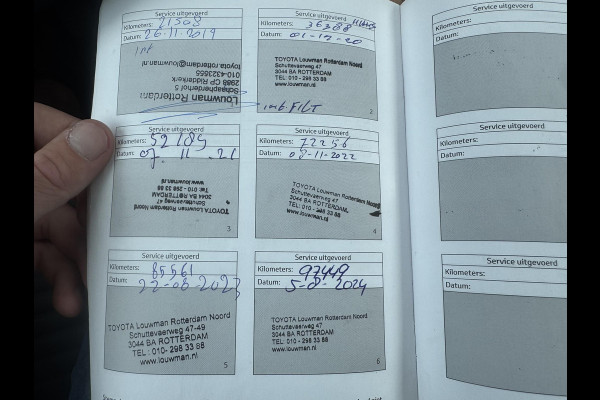 Service uitgevoerd
Kilometers: 21508
Datum: 26-11-2019
Louwman Rotterdam
Schaapherderhof 5
2988 CP Ridderkerk
010-4323655
toyota.rotterdam@louwman.nl
Service uitgevoerd
Kilometers: 36388
Datum: 01-12-20
TOYOTA Louwman Rotterdam Noord
Schuttevaerweg 47
3044 BA ROTTERDAM
www.louwman.nl
2
Service uitgevoerd
Kilometers: 52189
Datum: 11-21
TOYOTA Louwman Rotterdam Noord
Schuttevaerweg 47
3044 BA ROTTERDAM
Tel: 010 - 298 33 88
www.louwman.nl
3
Service uitgevoerd
Kilometers: 72256
Datum: 08-11-2022
TOYOTA Louwman Rotterdam Noord
Schuttevaerweg 47
3044 BA ROTTERDAM
TEL: 010 - 298 33 88
www.louwman.nl
4
Service uitgevoerd
Kilometers: 85561
Datum: 22-08-2023
TOYOTA Louwman Rotterdam Noord
Schuttevaerweg 47-49
3044 BA ROTTERDAM
TEL: 010- 298 33 88
www.louwman.nl
5
Service uitgevoerd
Kilometers: 97449
Datum: 5-8-2024
TOYOTA Louwman Rotterdam Noord
Schuttevaerweg 47
3044 BA ROTTERDAM
TEL: 010 - 298 33 88
www.louwman.nl
6
Service uitgevoerd
Kilometers:
Datum:
Service uitgevoerd
Kilometers:
Datum:
Service uitgevoerd
Kilometers:
Datum: